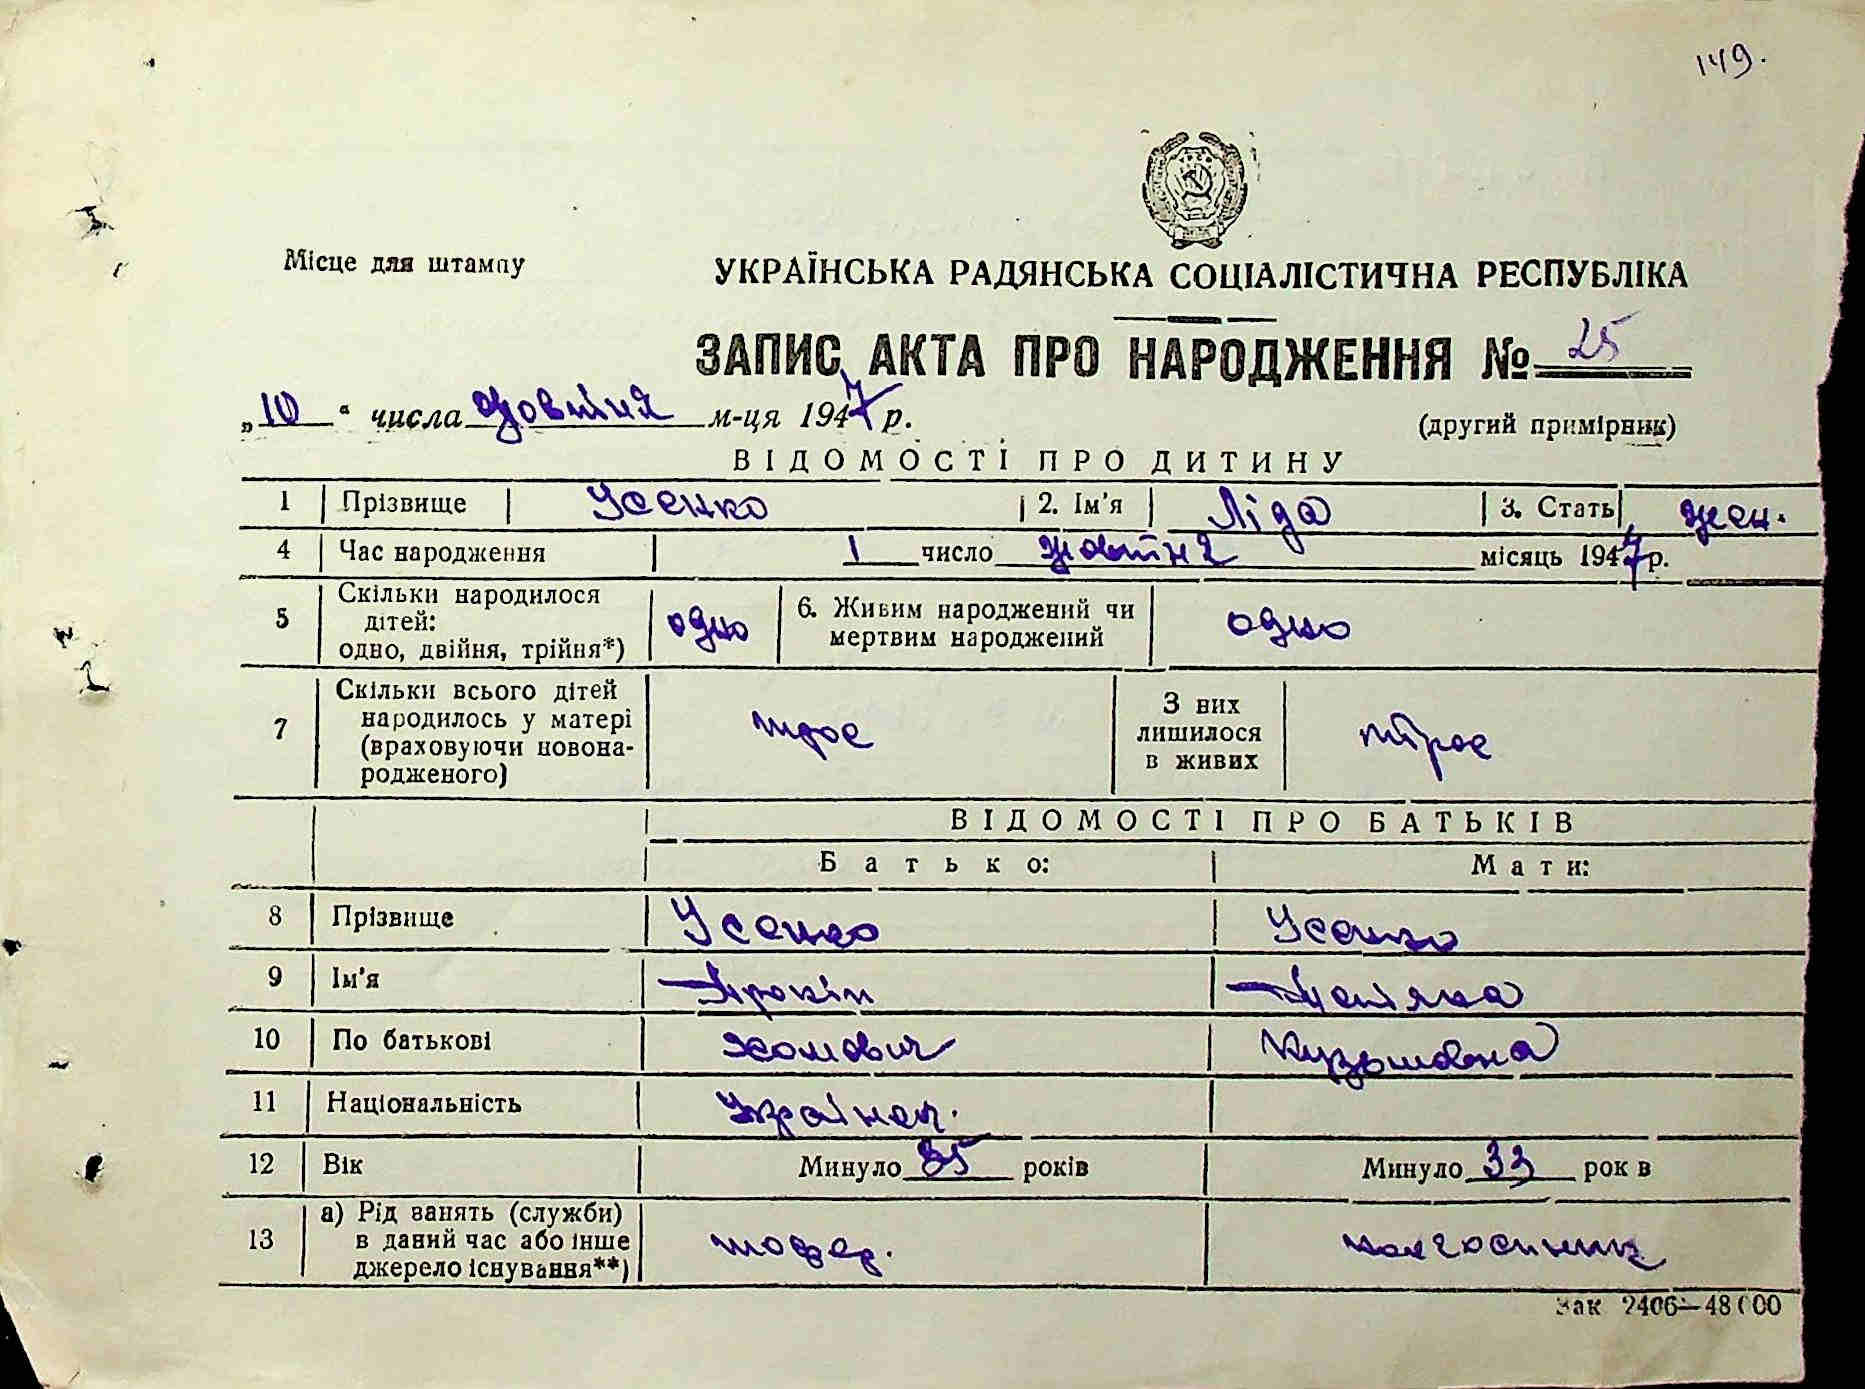 149.
Місце для штампу
УКРАЇНСЬКА РАДЯНСЬКА СОЦІАЛІСТИЧНА РЕСПУБЛІКА
ЗАПИС АКТА ПРО НАРОДЖЕННЯ № 25
„10“ числа жовтня м-ця 1947 р.
(другий примірник)
ВІДОМОСТІ ПРО ДИТИНУ
1 Прізвище Усенко 2. Ім'я Ліда 3. Стать жен.
4 Час народження 1 число жовтня місяць 1947 р.
5 Скільки народилося дітей: одно, двійня, трійня*) одно 6. Живим народжений чи мертвим народжений одно
7 Скільки всього дітей народилось у матері (враховуючи новонародженого) троє З них лишилося в живих троє
ВІДОМОСТІ ПРО БАТЬКІВ
Батько: Мати:
8 Прізвище Усенко Усенко
9 Ім'я
10 По батькові Хомович Кузьмовна
11 Національність
12 Вік Минуло 35 років Минуло 33 рок в
13 а) Рід занять (служби) в даний час або інше джерело існування**)
Зак 2406—48000